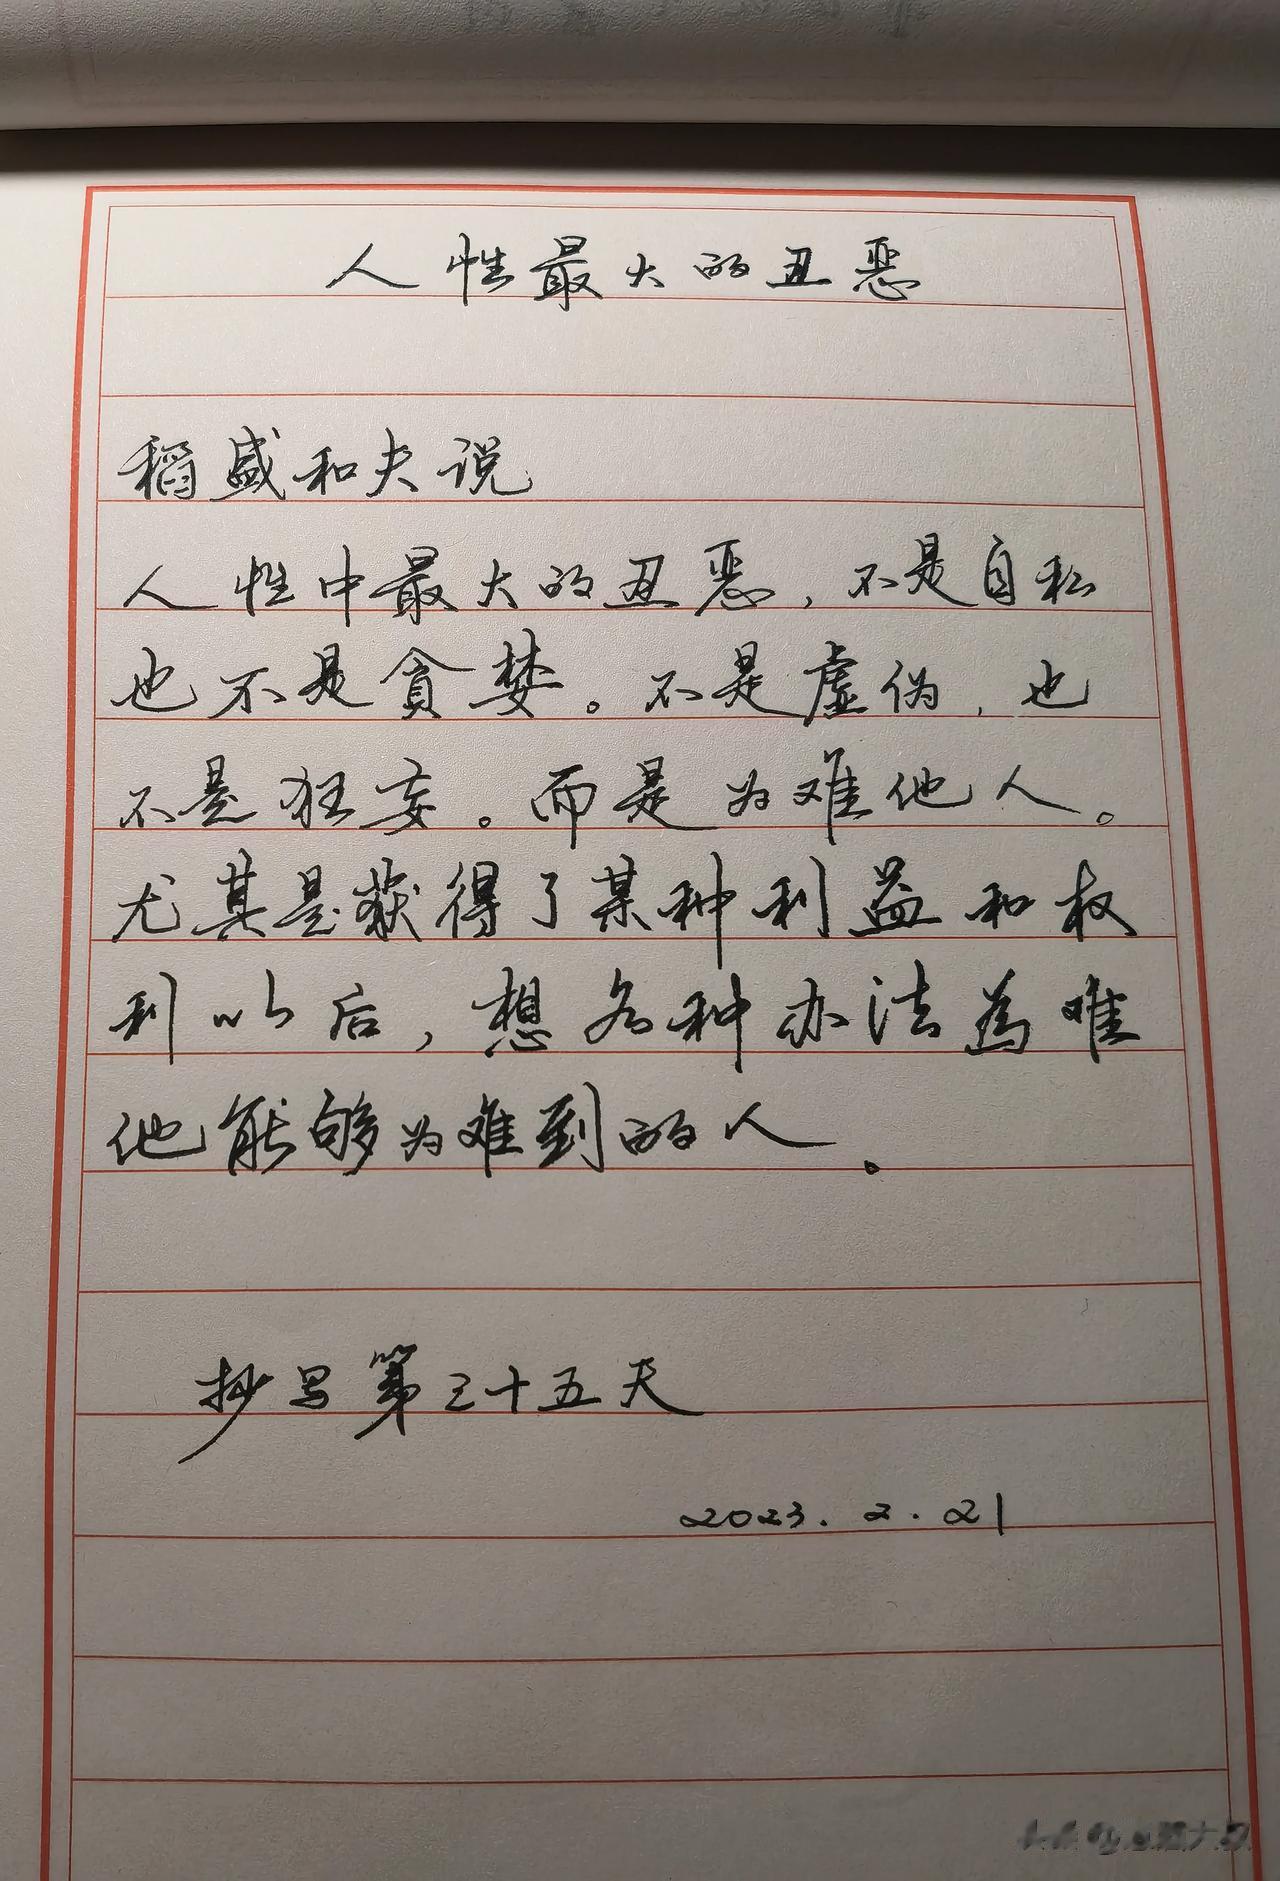 人性最大的丑恶
稻盛和夫说
人性中最大的丑恶，不是自私
也不是貪婪。不是虚伪，也
不是狂妄。而是为难他人。
尤其是获得了某种利益和权
利以后，想各种办法為难
他能够为难到的人。
抄写第三十五天
2023.2.21